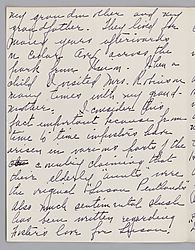 my grandmother and my
grandfather. They lived for
many years afterwards
on Cedar Ave. across the
park from them. When a
child, I visited Mrs. Robinson
many times with my grand-
mother. I consider this
fact important because from
time to time imposters have
arisen in various parts of the
country claiming that
their elderly "aunts" were
the original Susan Pentlands
also much sentimental slush
has been written regarding
Foster's love for Susan.